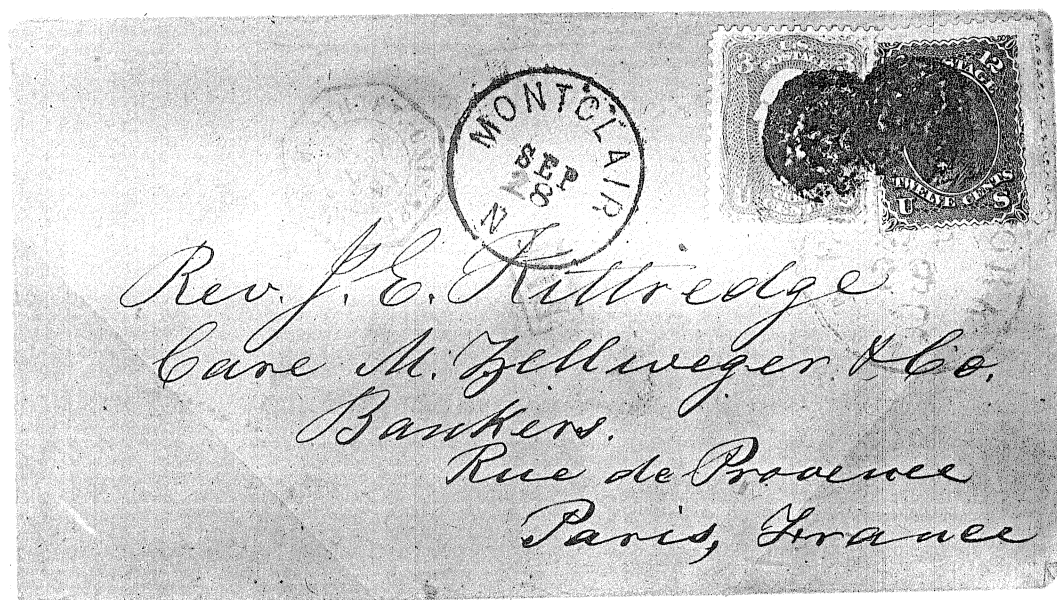 MONTCLAIR
SEP
28
N
3 U.S. POSTAGE 3
12
POSTAGE
TWELVE CENTS
U S
Rev. J. E. Kittredge
Care M. Zellweger & Co.
Bankers.
Rue de Provence
Paris, France